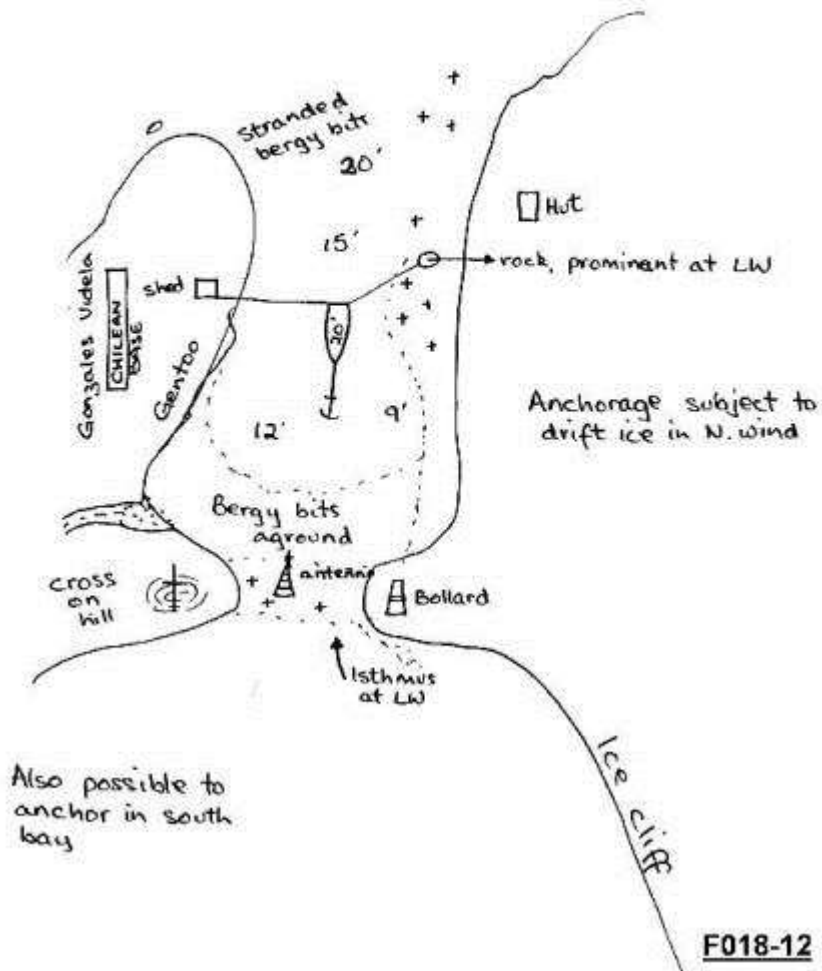 Stranded
bergy bits
20'
15'
Hut
rock, prominent at LW
Shed
20'
Gonzales Videla
CHILEAN
BASE
Gentoo
12'
9'
Anchorage subject to
drift ice in N. wind
Bergy bits
aground
antenna
cross
on
hill
Bollard
Isthmus
at LW
Also possible to
anchor in south
bay
Ice cliff
F018-12